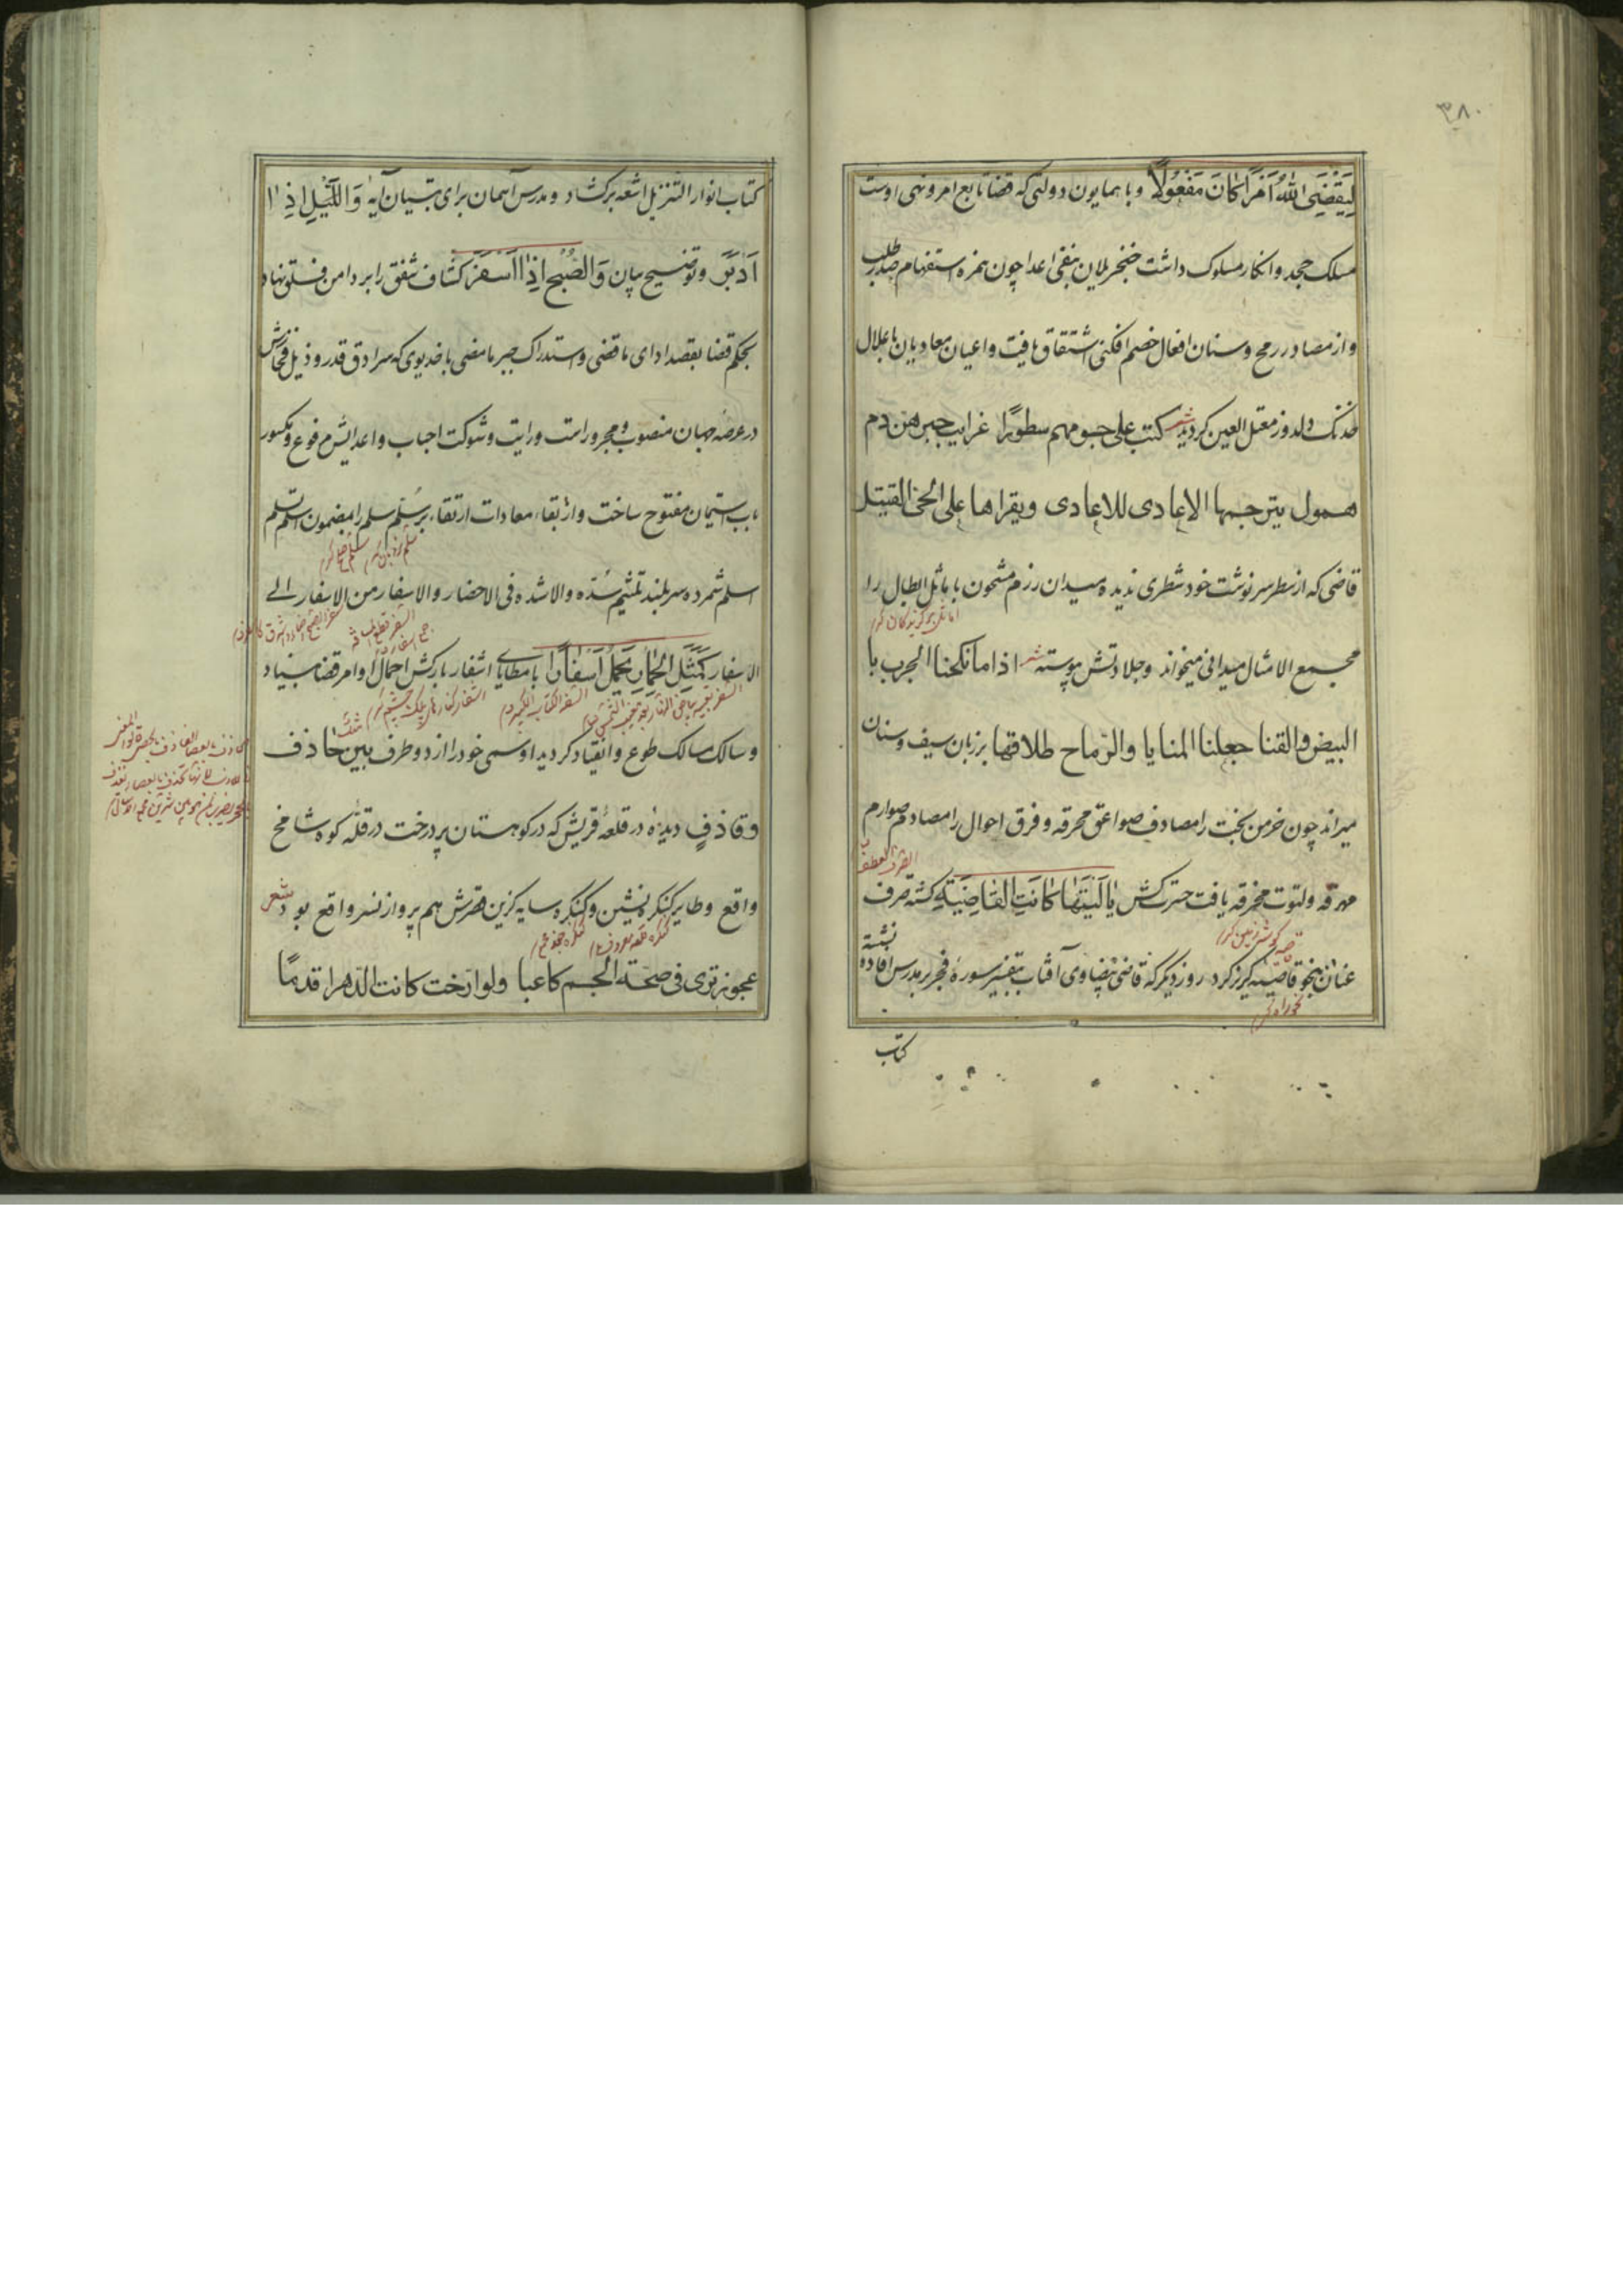 ٣٨٠
لِيَقْضِيَ اللّٰهُ اَمْرًا كَانَ مَفْعُولًا وبا همايون دولتى كه قضا تابع امر ونهى اوست
مسلك جحد وانكار مسلوك داشت خنجر يلان بنفى اعدا چون همزه استفهام صدر طلب
واز مصادر رمح وسنان افعال خصم افكنى اشتقاق يافت واعيان معاديان باعلال
خدنك دلدوز معتل العين كرديد شعر كتب على جسومهم سطورًا غرايب حبرهن دم
همول يترجمها الاعادى للاعادى ويقراها على الحى القتيل
قاضى كه از سطر سرنوشت خود شطرى نديده ميدان رزم مشحون باماثل ابطال را
مجمع الامثال ميدانى ميخواند وجلادتش پيوسته شعر اذا ما نكحنا الحرب با
البيض والقنا جعلنا المنايا والرّماح طلاقها بر زبان سيف وسنان
ميراند چون خرمن بخت را مصادف صواعق محرقه وفرق احوال را مصادم صوارم
الصرف العطف
مهرقه ولتوت مخرقه يافت حسرت كش يَا لَيْتَهَا كَانَتِ القَاضِيَةَ كشته صرف
عنان بنحو قاصيه كريز كرد روز ديكر كه قاضى بيضاوى آفتاب بتفسير سورهٔ فجر بر مدرس افاده نشسته
كتاب
كتاب انوار التنزيل اشعه بركشاد ومدرس آسمان براى تبيان آيهٔ وَاللَّيْلِ اِذْ
اَدْبَرَ وتوضيح بيان وَالصُّبْحِ اِذَا اَسْفَرَ كشاف شفق را بر دامن فلق نهاد
بحكم قضا بقصد اداى ما قضى واستدراك جبر ما مضى با خديوى كه سرادق قدر وذيل فخارش
در عرصه جهان منصوب ومجرور است ورايت وشوكت احباب واعدايش مرفوع ومكسور
باب استيمان مفتوح ساخت وازبقاء معادات ارتقاء بر سُلّم سلم را بمضمون اسلم تسلم
اسلم شمرده سر بلند تلثيم سُدّه والاشده فى الاحضار والاسفار من الاسفار الى
الاسفار كَمَثَلِ الْحِمَارِ يَحْمِلُ اَسْفَارًا با مطاياى اشفار باركش احمال اوامر قضا بنياد
وسالك مسالك طوع وانقياد كرديد اوسمى خود را از دو طرف بين حَاذف
وقاذفٍ ديده در قلعهٔ قريش كه در كوهستان پر درخت در قلّه كوه شامخ
واقع وطاير كنكره نشين وكنكره سايه كزين قصرش هم پرواز نسر واقع بود شعر
عجوز ترى فى صحّة الجسم كاعبا ولو ارّخت كانت الدّهر اقدمًا